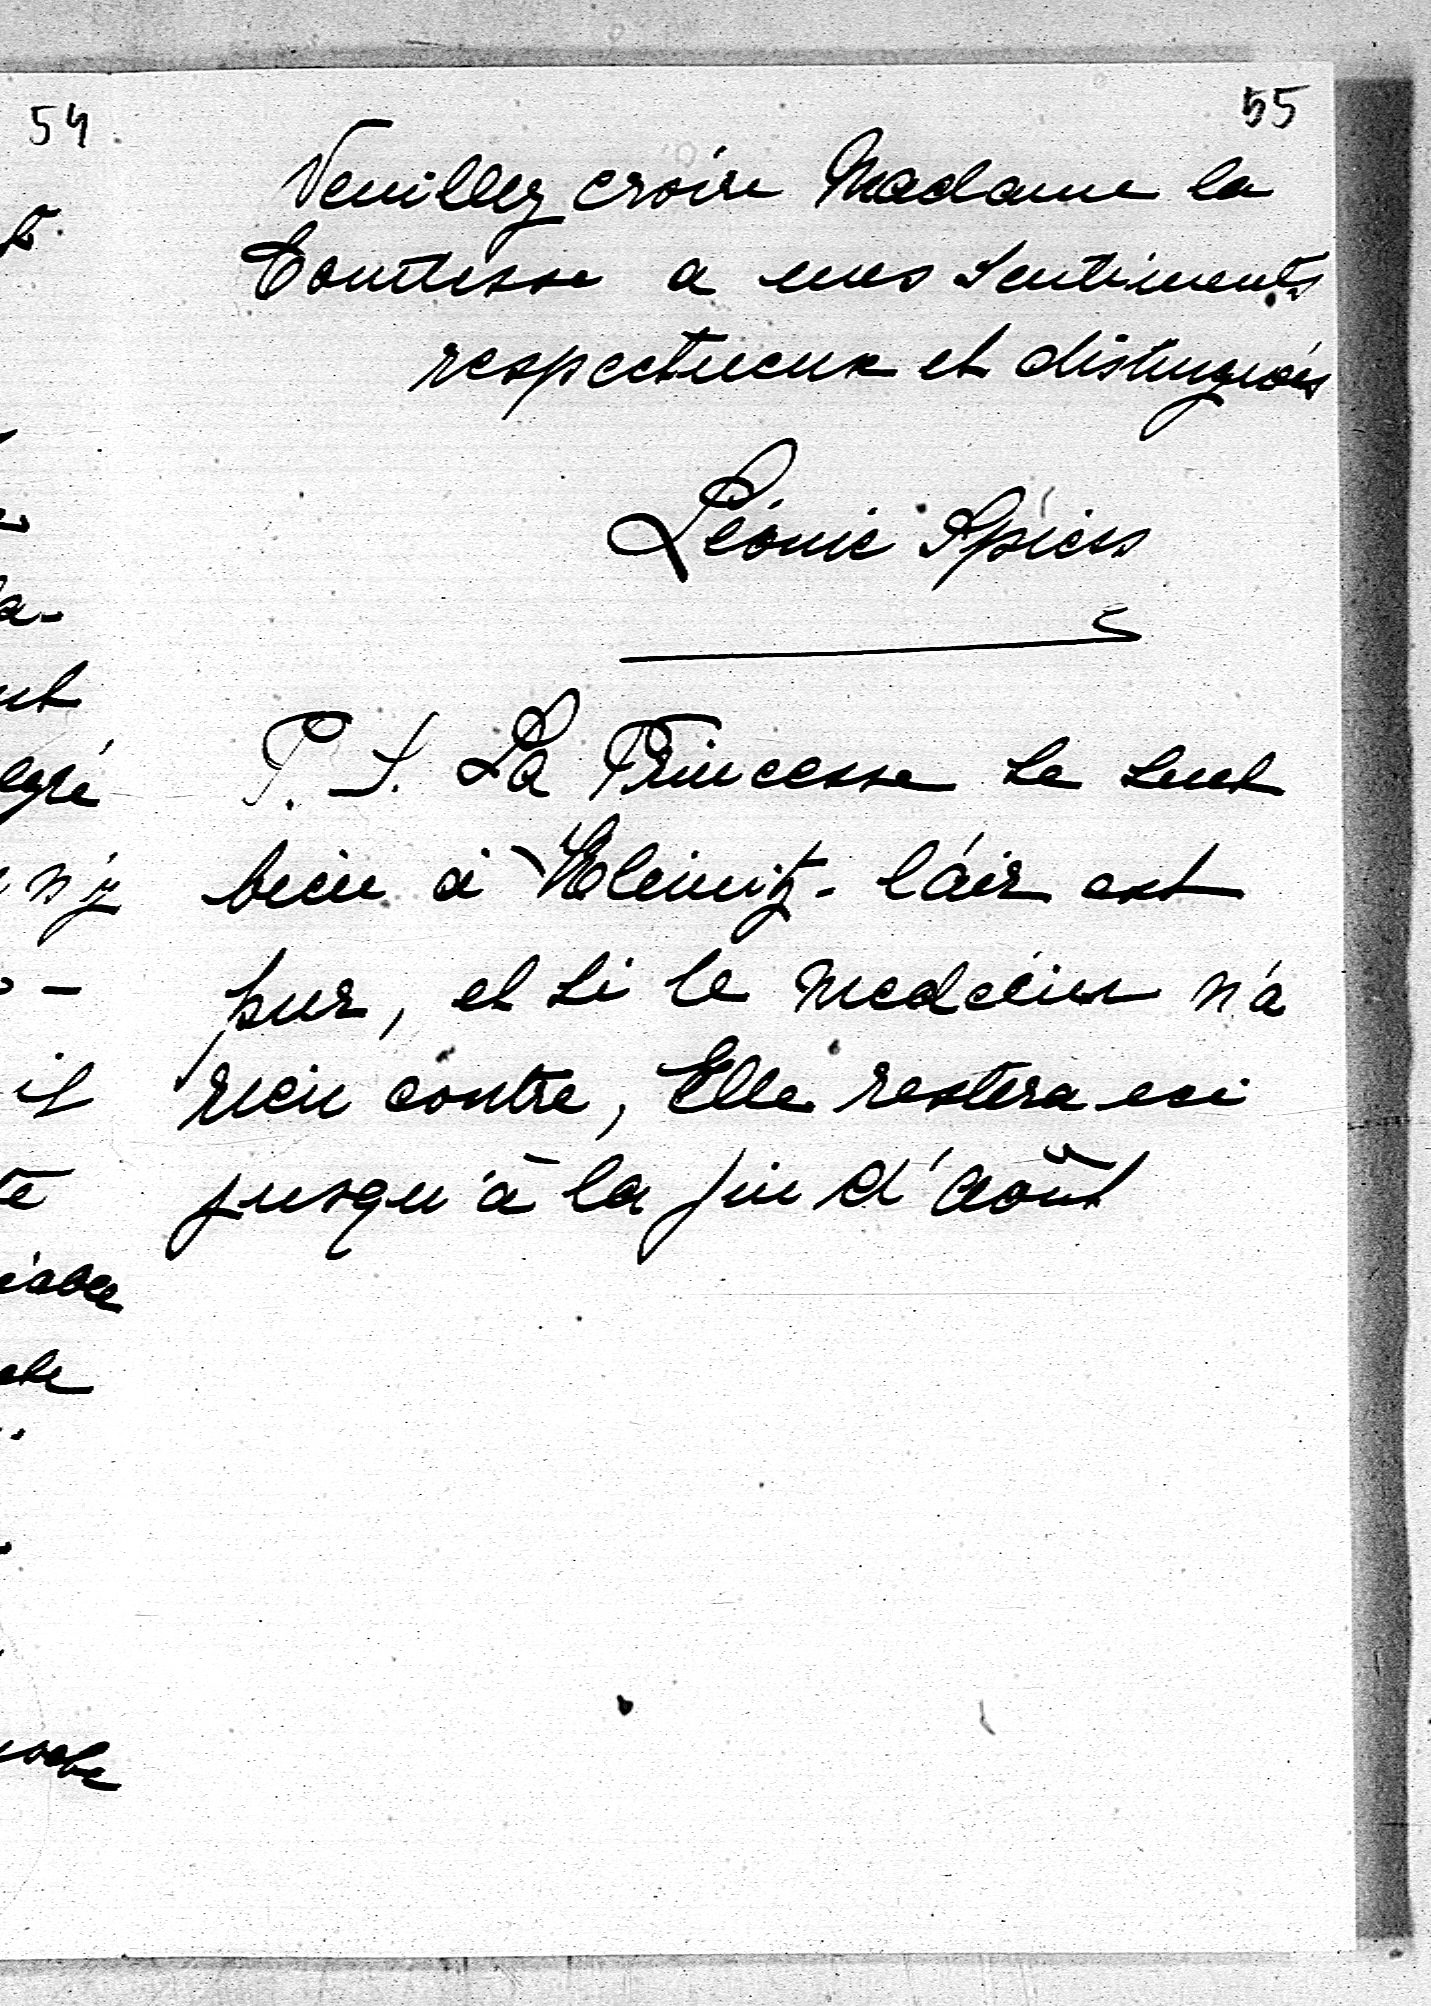 54
55
Veuillez croire Madame la
Comtesse a mes sentiments
respectueux et distingués
Léonie Spiess
P. S. La Princesse se sent
bien à l'air est
pur, et si le medécin n'a
rien contre, Elle restera ici
jusqu'à la fin d'août